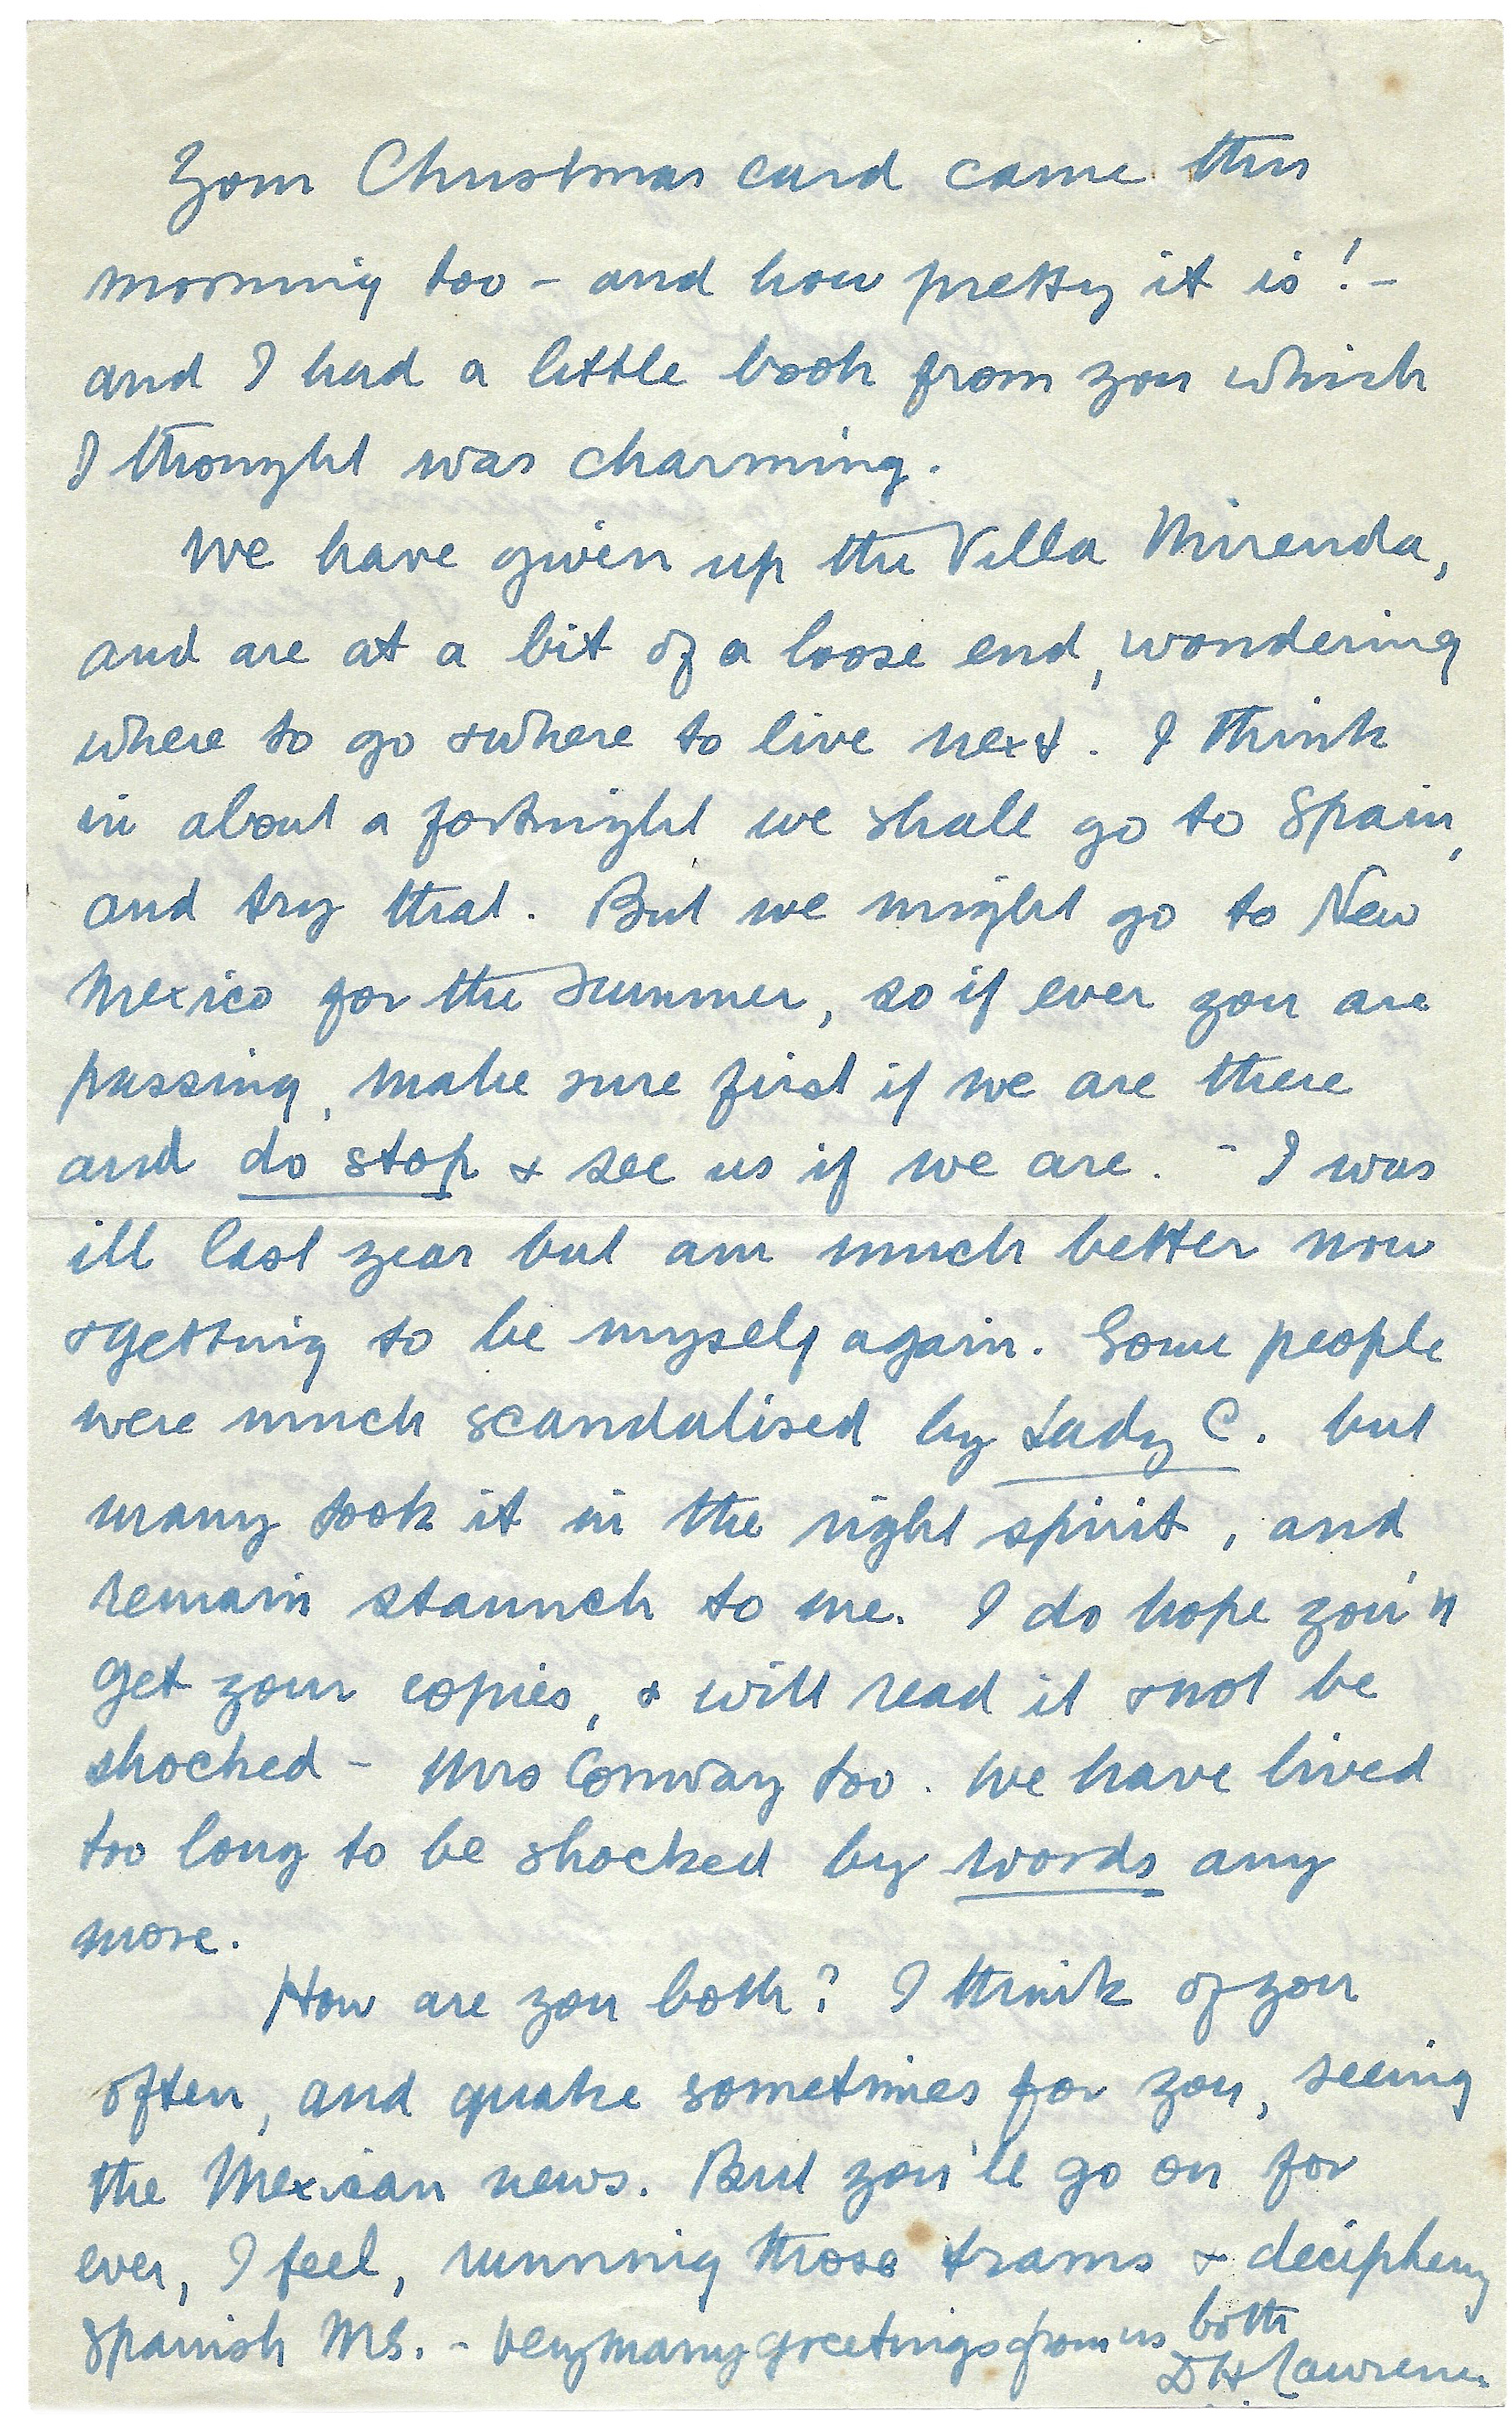 Your Christmas card came this
morning too – and how pretty it is! –
and I had a little book from you which
I thought was charming.
We have given up the Villa Mirenda,
and are at a bit of a loose end, wondering
where to go & where to live next. I think
in about a fortnight we shall go to Spain,
and try that. But we might go to New
Mexico for the summer, so if ever you are
passing, make sure first if we are there
and do stop & see us if we are. – I was
ill last year but am much better now
& getting to be myself again. Some people
were much scandalised by Lady C. but
many took it in the right spirit, and
remain staunch to me. I do hope you'll
get your copies, & will read it & not be
shocked – Mrs Conway too. We have lived
too long to be shocked by words any
more.
How are you both? I think of you
often, and quake sometimes for you, seeing
the Mexican news. But you'll go on for
ever, I feel, running those trams & deciphering
Spanish MS. – Very many greetings from us both
D H Lawrence